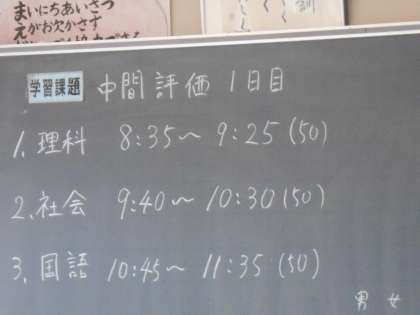 まいにちあいさつ
えがおかかさず
訓
学習課題 中間評価 1日目
1. 理科 8:35～9:25 (50)
2. 社会 9:40～10:30 (50)
3. 国語 10:45～11:35 (50)
男 女